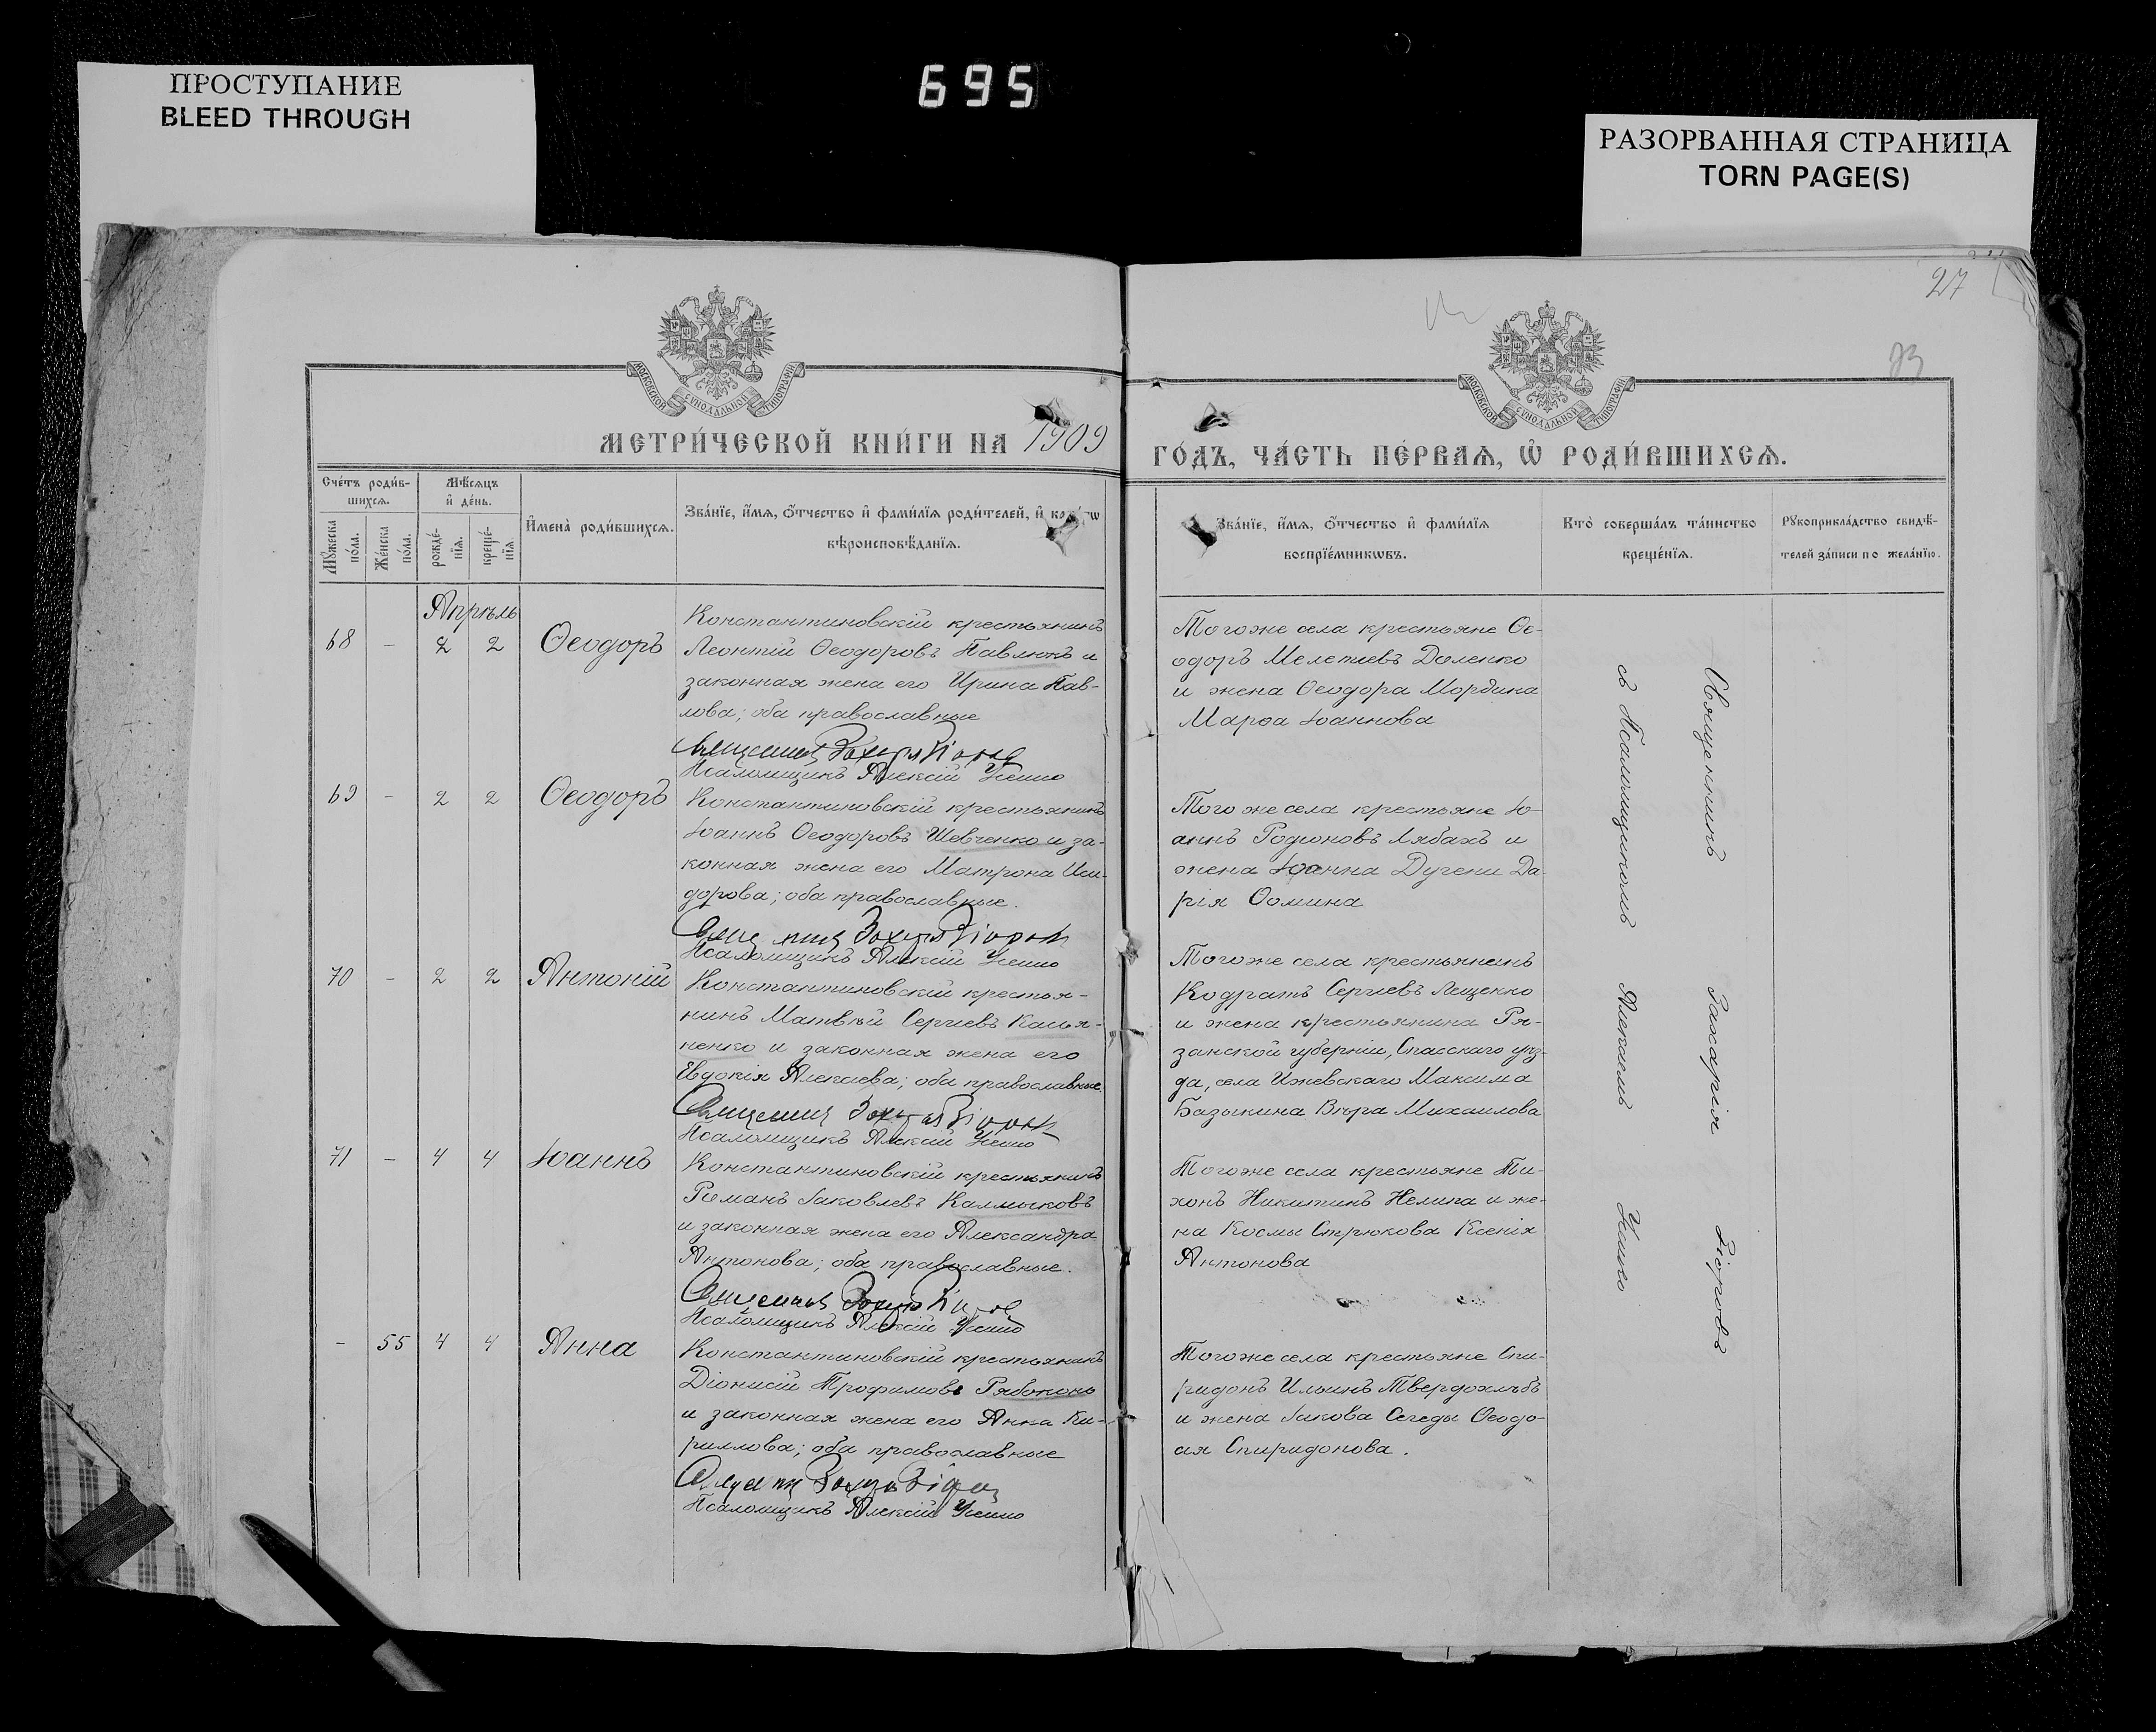 ПРОСТУПАНИЕ
BLEED THROUGH
695
РАЗОРВАННАЯ СТРАНИЦА
TORN PAGE(S)
27
МОСКОВСКОЙ СѴНОДАЛЬНОЙ ТИПОГРАФІИ
МОСКОВСКОЙ СѴНОДАЛЬНОЙ ТИПОГРАФІИ
МЕТРИ́ЧЕСКОЙ КНИ́ГИ НА 1909
ГО́ДЪ, ЧА́СТЬ ПЕ́РВАѦ, Ѡ҆ РОДИ́ВШИХСѦ.
Сче́тъ роди́в-
шихсѧ.
Мꙋ́жеска по́ла.
Же́нска по́ла.
Мѣ́сѧцъ
и҆ де́нь.
рожде́-
нїѧ.
креще́-
нїѧ.
И҆мена̀ роди́вшихсѧ.
Зва́нїе, и҆́мѧ, ѻ҆́тчество и҆ фами́лїѧ роди́телей, и҆
вѣроисповѣ́данїѧ.
Зва́нїе, и҆́мѧ, ѻ҆́тчество и҆ фами́лїѧ
воспрїе́мникѡвъ.
Кто̀ соверша́лъ та́инство
креще́нїѧ.
Рꙋкоприкла́дство свидѣ́-
телей за́писи по жела́нїю.
Апрѣль
68 - 2 2 Ѳеодоръ
Константиновскій крестьянинъ
Леонтій Ѳеодоровъ Павлюкъ и
законная жена его Ирина Пав-
лова; оба православные
Священникъ Захарія
Псаломщикъ Алексій Усенко
Тогоже села крестьяне Ѳе-
одоръ Мелетіевъ Доленко
и жена Ѳеодора Мордина
Марѳа Іоаннова
69 - 2 2 Ѳеодоръ
Константиновскій крестьянинъ
Іоаннъ Ѳеодоровъ Шевченко и за-
конная жена его Матрона Иси-
дорова; оба православные.
Священникъ Захарія
Псаломщикъ Алексій Усенко
Того же села крестьяне Іо-
аннъ Родіоновъ Лябахъ и
жена Іоанна Дугени Да-
рія Ѳомина
70 - 2 2 Антоній
Константиновскій крестья-
нинъ Матвѣй Сергіевъ Касья-
ненко и законная жена его
Евдокія Алексѣева; оба православные.
Священникъ Захарія
Псаломщикъ Алексій Усенко
Тогоже села крестьянинъ
Кодратъ Сергіевъ Лещенко
и жена крестьянина Ря-
занской губерніи, Спасскаго уѣз-
да, села Ижевскаго Максима
Базыкина Вѣра Михаилова
71 - 4 4 Іоаннъ
Константиновскій крестьянинъ
Романъ Іаковлевъ Калмыковъ
и законная жена его Александра
Антонова; оба православные.
Священникъ Захарія
Псаломщикъ Алексій Усенко
Тогоже села крестьяне Ти-
хонъ Никитинъ Нелипа и же-
на Космы Стрюкова Ксенія
Антонова
- 55 4 4 Анна
Константиновскій крестьянинъ
Діонисій Трофимовъ Рябоконь
и законная жена его Анна Ки-
риллова; оба православные
Священникъ Захарія
Псаломщикъ Алексій Усенко
Тогоже села крестьяне Спи-
ридонъ Ильинъ Твердохлѣбъ
и жена Іакова Сегеды Ѳеодо-
сія Спиридонова.
Священникъ Захарія
съ Псаломщикомъ Алексіемъ Усенко